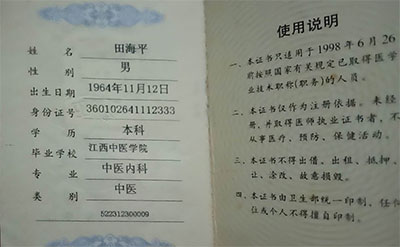 姓 名 田海平
性 别 男
出生日期 1964年11月12日
身份证号 360102641112333
学 历 本科
毕业学校 江西中医学院
专 业 中医内科
类 别 中医
522312300009
使用说明
一、本证书只适用于1998年6月26
前按照国家有关规定已取得医学
业技术职称(职务)的人员。
二、本证书仅作为注册依据。未经
册,并取得医师执业证书者,不
从事医疗、预防、保健活动。
三、本证书不得出借、出租、抵押、
让、涂改、故意损毁。
四、本证书由卫生部统一印制,任何
位或个人不得擅自印制。